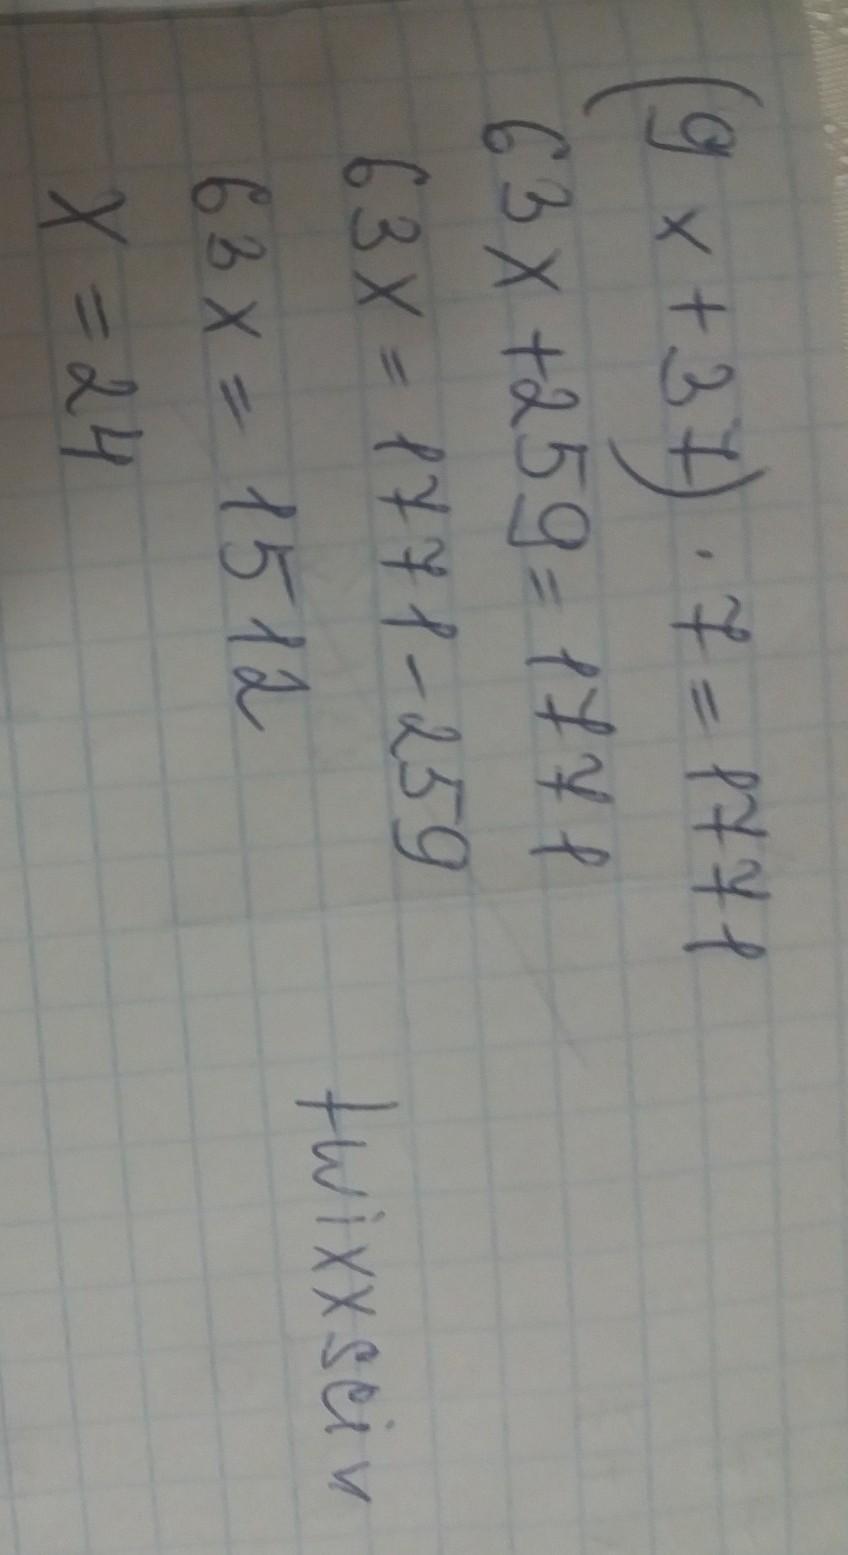 (9x+37)·7=1771
63x+259=1771
63x=1771-259
63x=1512
x=24
twixxsciv